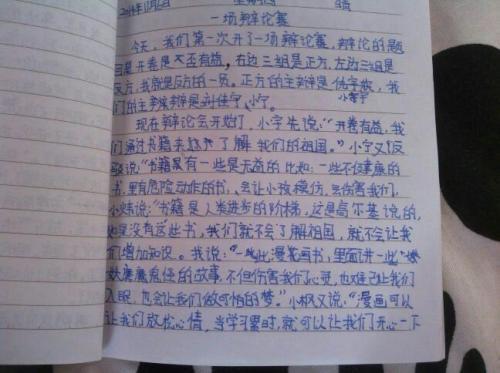 2014年11月6日 星期四 晴
一场辩论赛
今天，我们第一次开了一场辩论赛，辩论的题
目是开卷是不否有益，右边三组是正方，左边三组是
反方，我就是反方的一员。正方的主辩是
们的主辩是刘佳宁，小宁。
现在辩论会开始了，小宇先说：“开卷有益，我
们通过书籍来了解我们的祖国。”小宁又反
驳说：“书籍是有一些是无益的比如：一些不健康的
书，里有危险动作的书，会让小孩模仿，会伤害我们，
说：“书籍是人类进步的阶梯，这是高尔基说的，
如果没有这些书，我们就不会了解祖国，就不会让我
们增加知识。我说：“一些漫画书，里面讲一些
妖魔鬼怪的故事，不但伤害我们心灵，也难已让我们
入眠，也会让我们做可怕的梦。”小枫又说：“漫画可以
让我们放松心情，当学习累时，就可以让我们开心一下